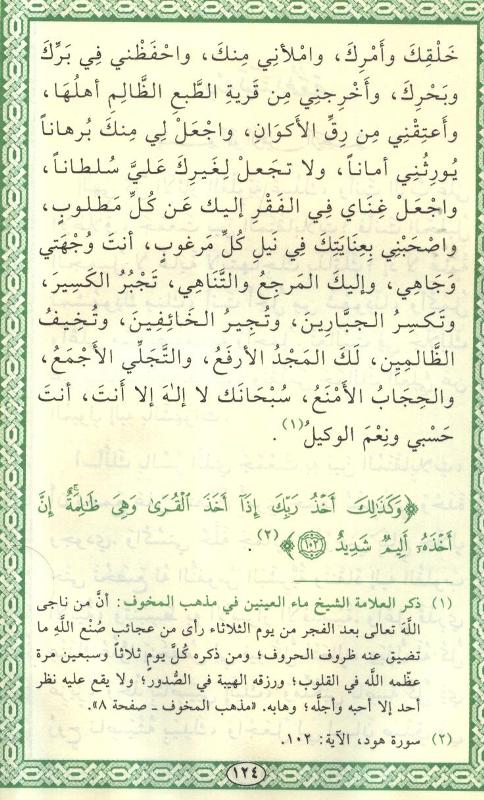 خَلْقِكَ وأَمْرِكَ، وامْلأنِي مِنكَ، واحْفَظْني فِي بَرِّكَ
وبَحْرِكَ، وأَخْرِجنِي مِن قَريةِ الطَّبعِ الظَّالِمِ أهلُهَا،
وأَعتِقْنِي مِن رِقِّ الأَكوَانِ، واجْعَلْ لِي مِنكَ بُرهاناً
يُورِثُنِي أماناً، ولا تَجعَلْ لِغَيرِكَ عَليَّ سُلطاناً،
واجْعَلْ غِنَايَ فِي الفَقْرِ إليكَ عَن كُلِّ مَطلوبٍ،
واصْحَبْنِي بِعِنَايَتِكَ فِي نَيلِ كُلِّ مَرغوبٍ، أنتَ وُجْهَتي
وَجَاهِي، وإليكَ المَرجِعُ والتَّنَاهِي، تَجْبُرُ الكَسِيرَ،
وتَكسِرُ الجبَّارِينَ، وتُجِيرُ الخَائِفِينَ، وتُخِيفُ
الظَّالمِينِ، لَكَ المَجْدُ الأرفَعُ، والتَّجَلِّي الأَجْمَعُ،
والحِجَابُ الأَمْنَعُ، سُبْحَانَك لا إلهَ إلا أَنتَ، أنتَ
حَسْبي ونِعْمَ الوكيلُ(١).
﴿وَكَذَٰلِكَ أَخْذُ رَبِّكَ إِذَآ أَخَذَ ٱلْقُرَىٰ وَهِىَ ظَٰلِمَةٌ ۚ إِنَّ
أَخْذَهُۥٓ أَلِيمٌ شَدِيدٌ ١٠٢﴾(٢).
(١) ذكر العلامة الشيخ ماء العينين في مذهب المخوف: أنَّ من ناجى
اللَّهَ تعالى بعد الفجر من يوم الثلاثاء رأى من عجائب صُنْعِ اللَّهِ ما
تضيق عنه ظروف الحروف؛ ومن ذكره كُلَّ يومٍ ثلاثاً وسبعين مرة
عظّمه اللَّه في القلوب؛ ورزقه الهيبة في الصُّدور؛ ولا يقع عليه نظر
أحد إلا أحبه وأجلَّه؛ وهابه. «مذهب المخوف ـ صفحة ٨».
(٢) سورة هود، الآية: ١٠٢.
١٢٤